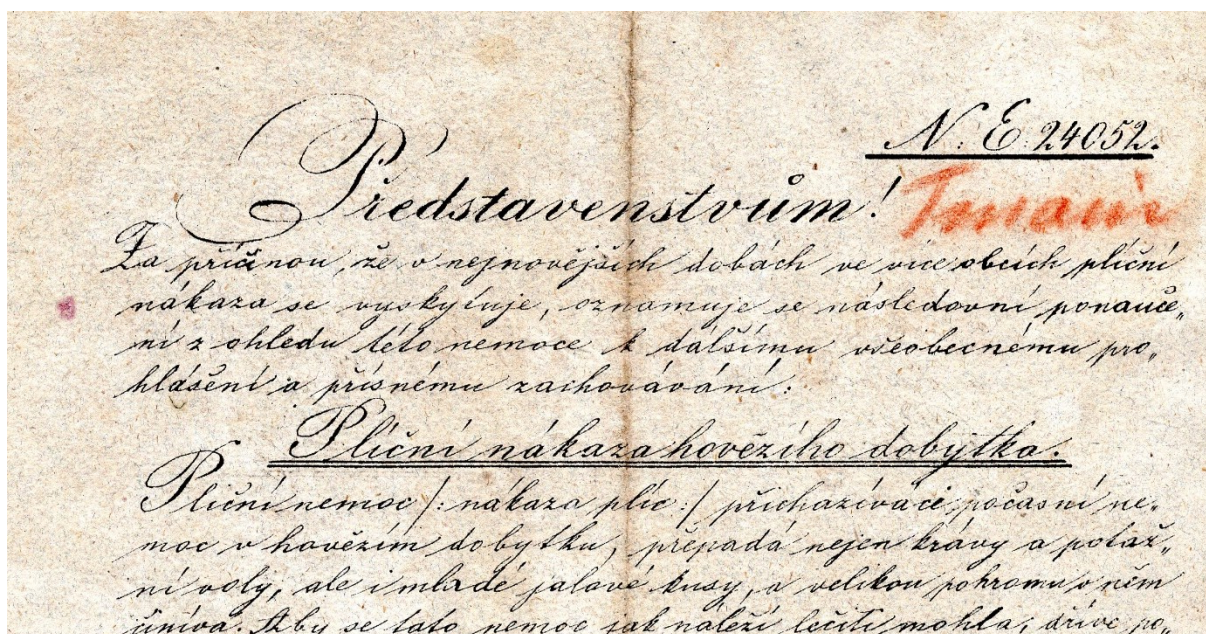 N: E: 24052.
Představenstvům!
Za příčinou, že v nejnovějších dobách ve více obcích plíční
nákaza se vyskytuje, oznamuje se následovní ponauče„
ní z ohledu této nemoce k dalšímu všeobecnému pro„
hlášení a přísnému zachovávání:
Plíční nákaza hovězího dobytka.
Plíční nemoc /: nákaza plic :/ přicházívá co počasní ne„
moc v hovězím dobytku, přepadá nejen krávy a potaž„
ní voly, ale i mladé jalové kusy, a velikou pohromu v něm
činívá. Aby se tato nemoc jak náleží léčiti mohla, dříve po„